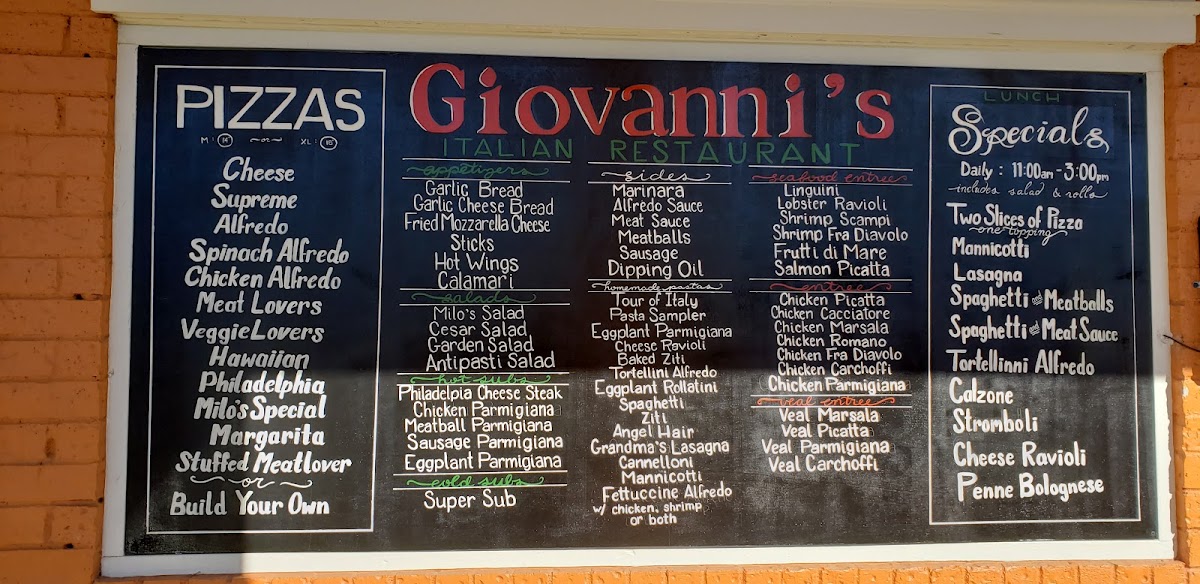 PIZZAS
M: 14 or XL: 16
Cheese
Supreme
Alfredo
Spinach Alfredo
Chicken Alfredo
Meat Lovers
Veggie Lovers
Hawaiian
Philadelphia
Milo's Special
Margarita
Stuffed Meatlover
or
Build Your Own
Giovanni's
ITALIAN RESTAURANT
appetizers
Garlic Bread
Garlic Cheese Bread
Fried Mozzarella Cheese
Sticks
Hot Wings
Calamari
salads
Milo's Salad
Cesar Salad
Garden Salad
Antipasti Salad
hot subs
Philadelpia Cheese Steak
Chicken Parmigiana
Meatball Parmigiana
Sausage Parmigiana
Eggplant Parmigiana
cold subs
Super Sub
sides
Marinara
Alfredo Sauce
Meat Sauce
Meatballs
Sausage
Dipping Oil
homemade pastas
Tour of Italy
Pasta Sampler
Eggplant Parmigiana
Cheese Ravioli
Baked Ziti
Tortellini Alfredo
Eggplant Rollatini
Spaghetti
Ziti
Angel Hair
Grandma's Lasagna
Cannelloni
Mannicotti
Fettuccine Alfredo
w/ chicken, shrimp
or both
seafood entree
Linguini
Lobster Ravioli
Shrimp Scampi
Shrimp Fra Diavolo
Frutti di Mare
Salmon Picatta
entree
Chicken Picatta
Chicken Cacciatore
Chicken Marsala
Chicken Romano
Chicken Fra Diavolo
Chicken Carchoffi
Chicken Parmigiana
veal entree
Veal Marsala
Veal Picatta
Veal Parmigiana
Veal Carchoffi
LUNCH
Specials
Daily: 11:00am - 3:00pm
includes salad & rolls
Two Slices of Pizza
one topping
Mannicotti
Lasagna
Spaghetti and Meatballs
Spaghetti and Meat Sauce
Tortellinni Alfredo
Calzone
Stromboli
Cheese Ravioli
Penne Bolognese